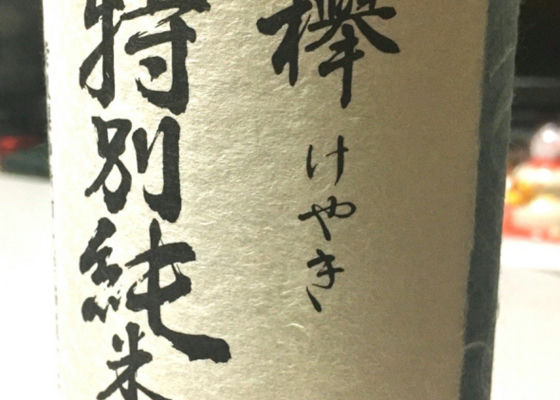 欅
けやき
特別純米